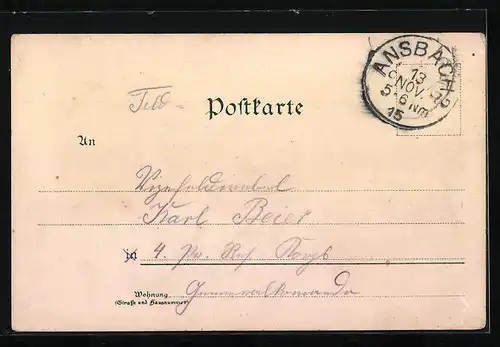 ANSBACH 2
13
NOV.
5-6 Nm
15
Feld- Postkarte
An
Vizefeldwebel
Karl Beier
in 4.
Wohnung
(Straße und Hausnummer)